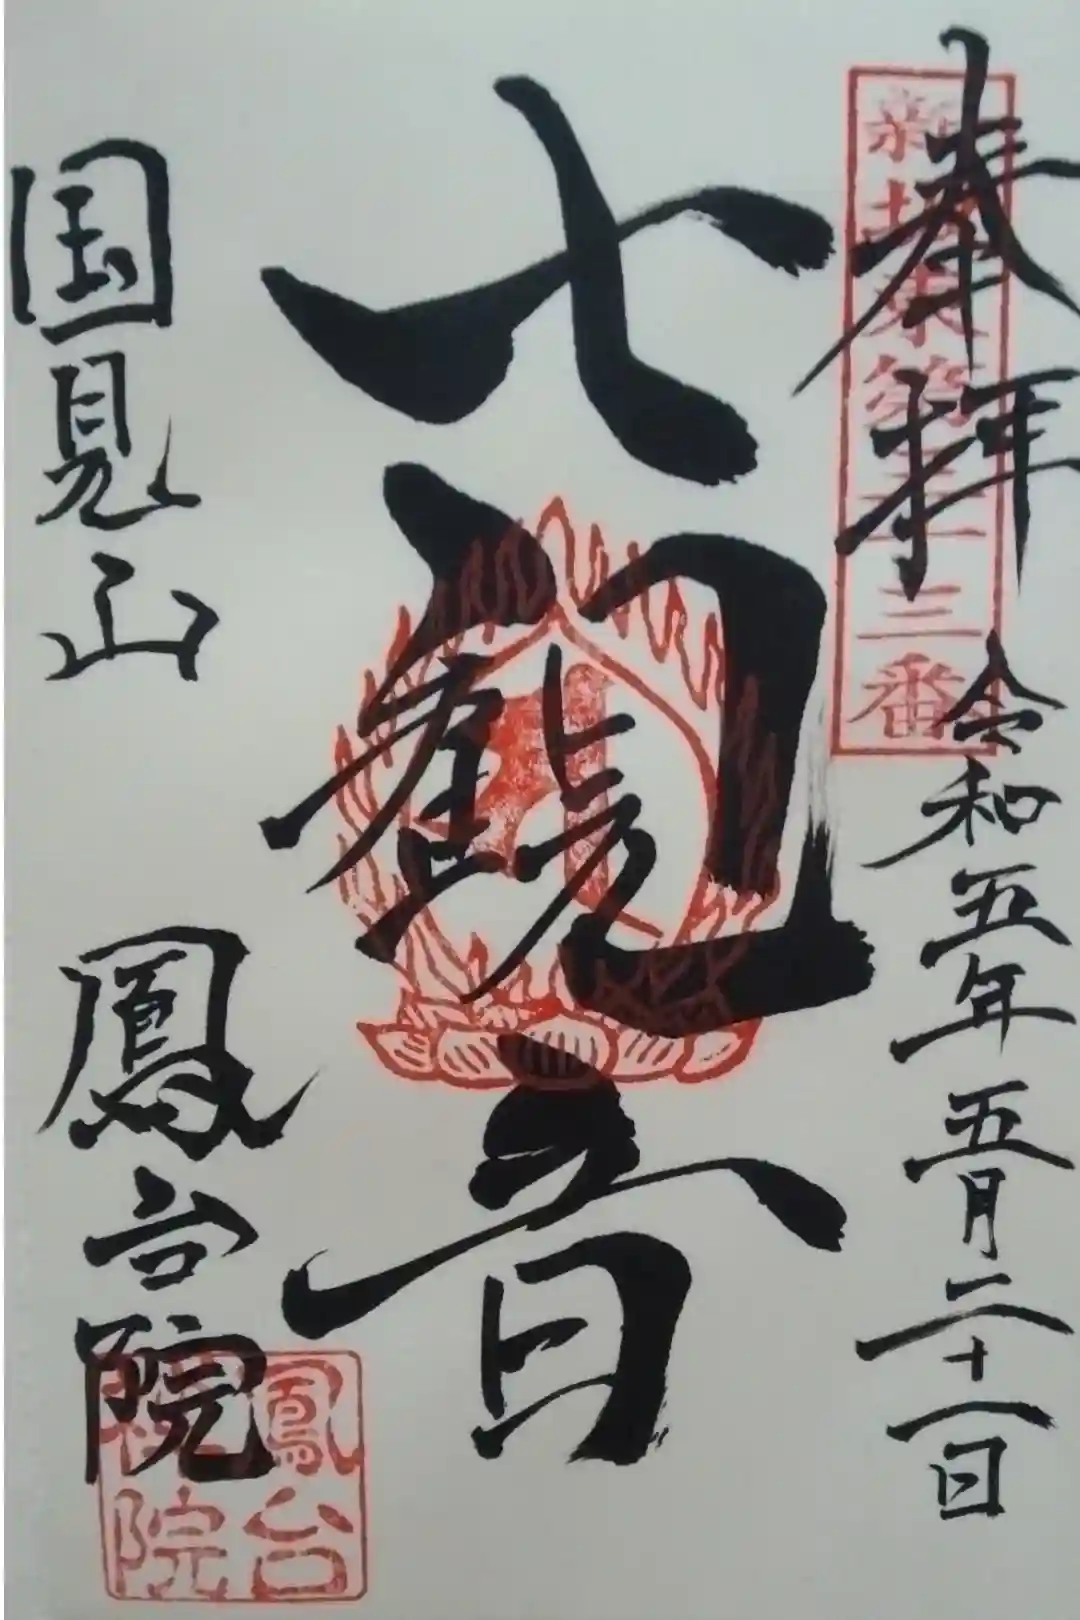 奉拝 令和五年五月二十一日
新坂東第三十三番
七観音
国見山 鳳台院
鳳台
院